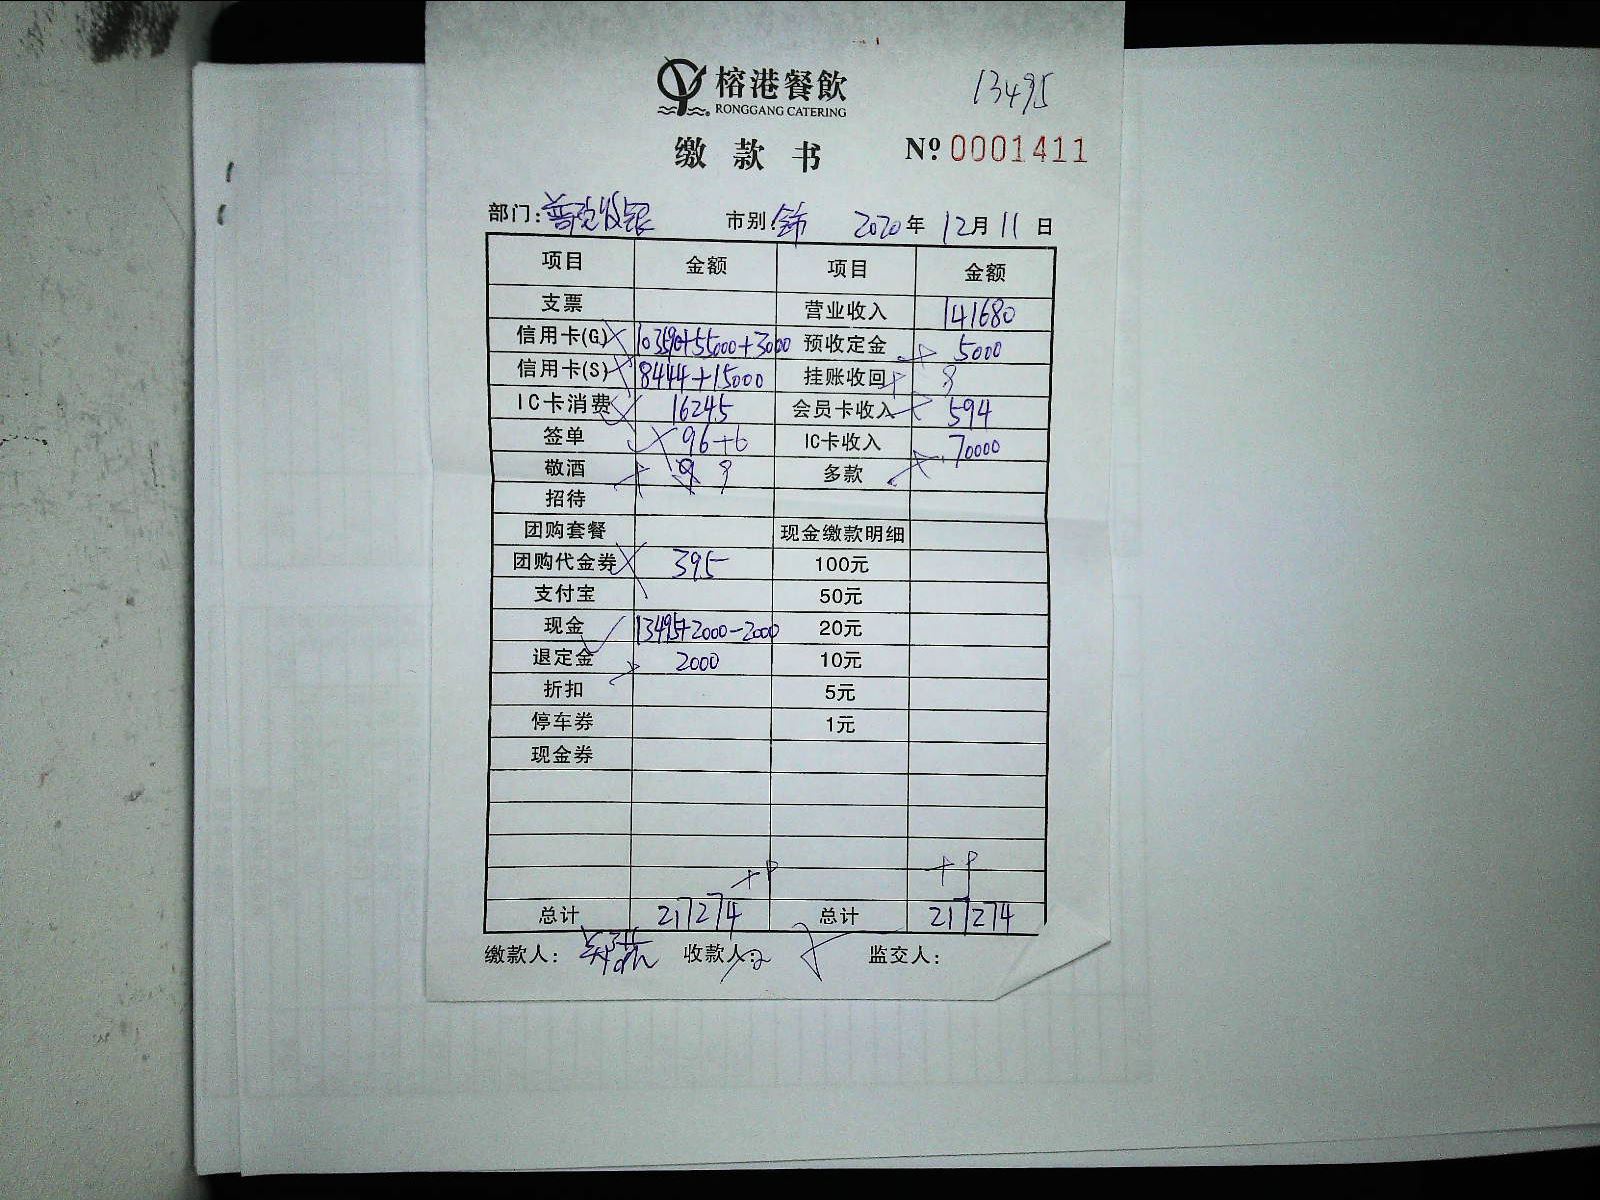 榕港餐飲 13495
RONGGANG CATERING
缴款书 Nº 0001411
部门: 市别: 2020年12月11日
项目 金额 项目 金额
支票 营业收入 141680
信用卡(G) 103590+55000+3000 预收定金 5000
信用卡(S) 8444+15000 挂账收回
IC卡消费 16245 会员卡收入 594
签单 96+6 IC卡收入 70000
敬酒 多款
招待
团购套餐 现金缴款明细
团购代金券 395 100元
支付宝 50元
现金 13495+2000-2000 20元
退定金 2000 10元
折扣 5元
停车券 1元
现金券
总计 217274 总计 217274
缴款人: 收款人: 监交人: